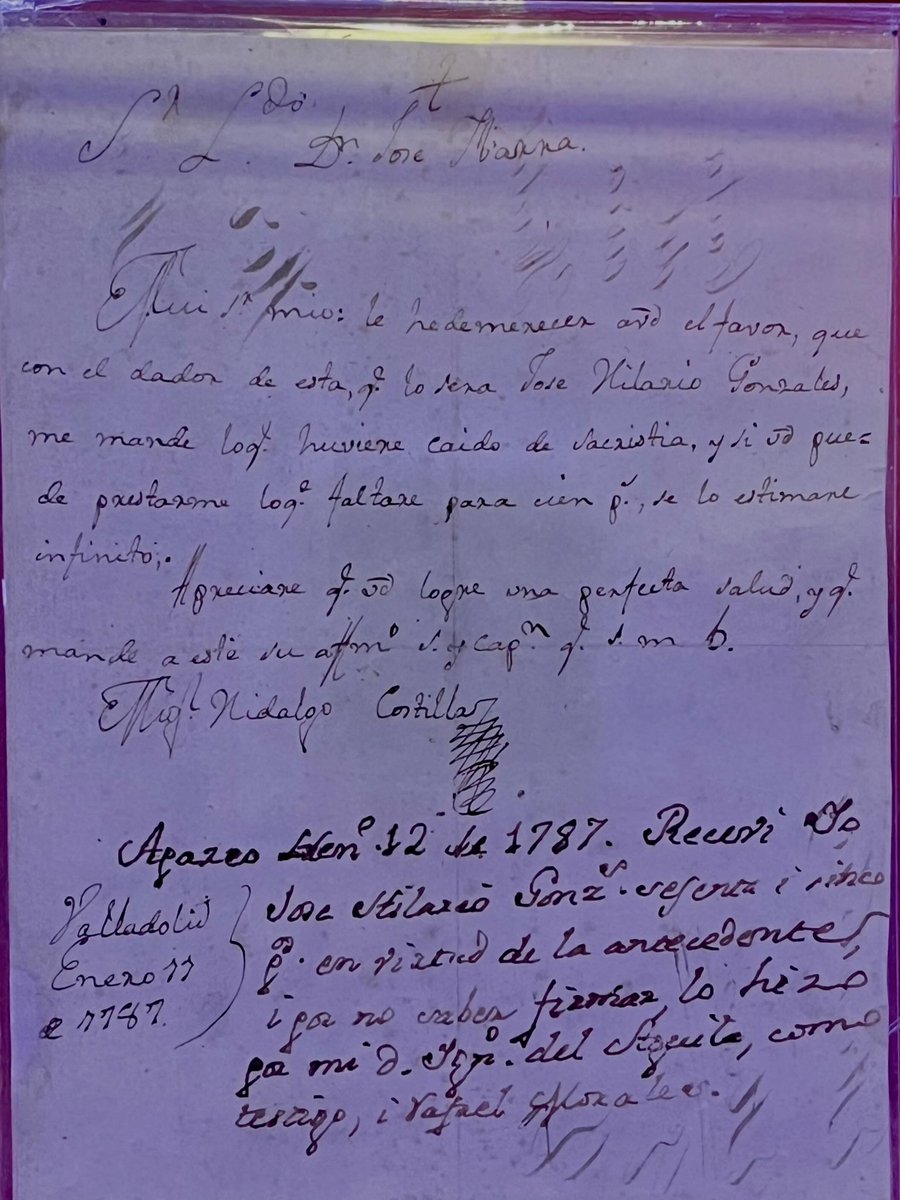 †
Sr. Ldo. Dn. Jose
Mui Sr. mio: le hedemerecer avd el favor, que
con el dador de esta, qe. lo sera Jose Hilario Gonzales,
me mande loqe. huviere caido de sacristia, y si vd pue=
de prestarme loqe. faltare para cien ps., se lo estimare
infinito,.
Apreciare qe. vd logre una perfecta salud, y qe.
mande a este su affmo s. y capn qe. s. m b.
Migl. Hidalgo Costilla
Valladolid
Enero 11
de 1787.
Apaxeo Heno. 12 de 1787. Recevi Yo
Jose Hilario Gonzs. sesenta i sinco
ps. en virtud de la antecedente,
i por no saber firmar, lo hizo
por mi d. Igno. del Aguila, como
testigo, i Rafael Morales.